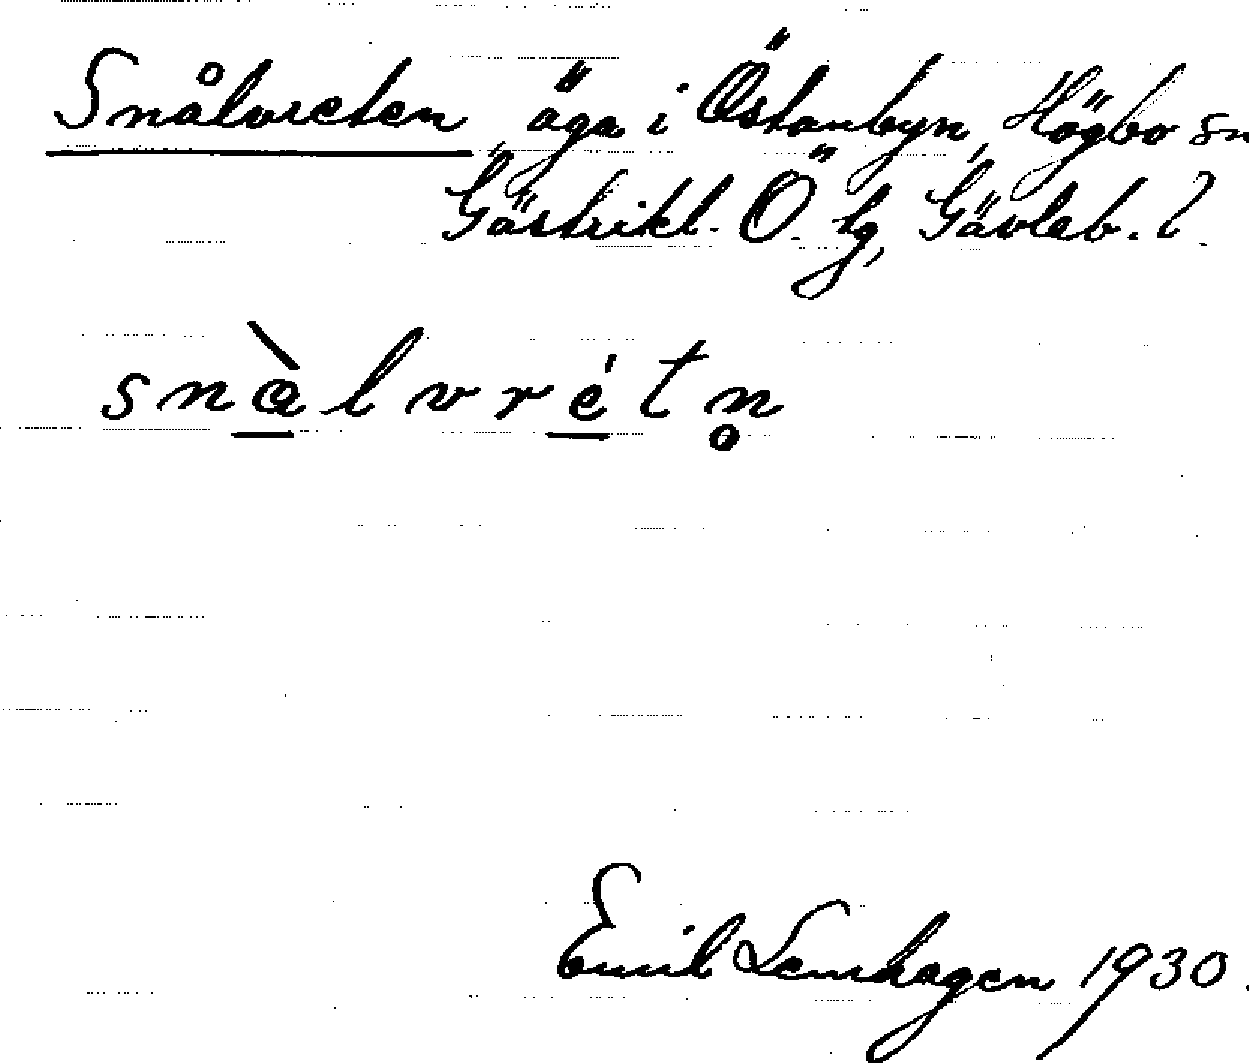 Snålvreten, äga i Östanbyn, Högbo sn
Gästrikl. Ö. tg, Gävleb. l.
snàlvrétn̥
Emil Lemhagen 1930.